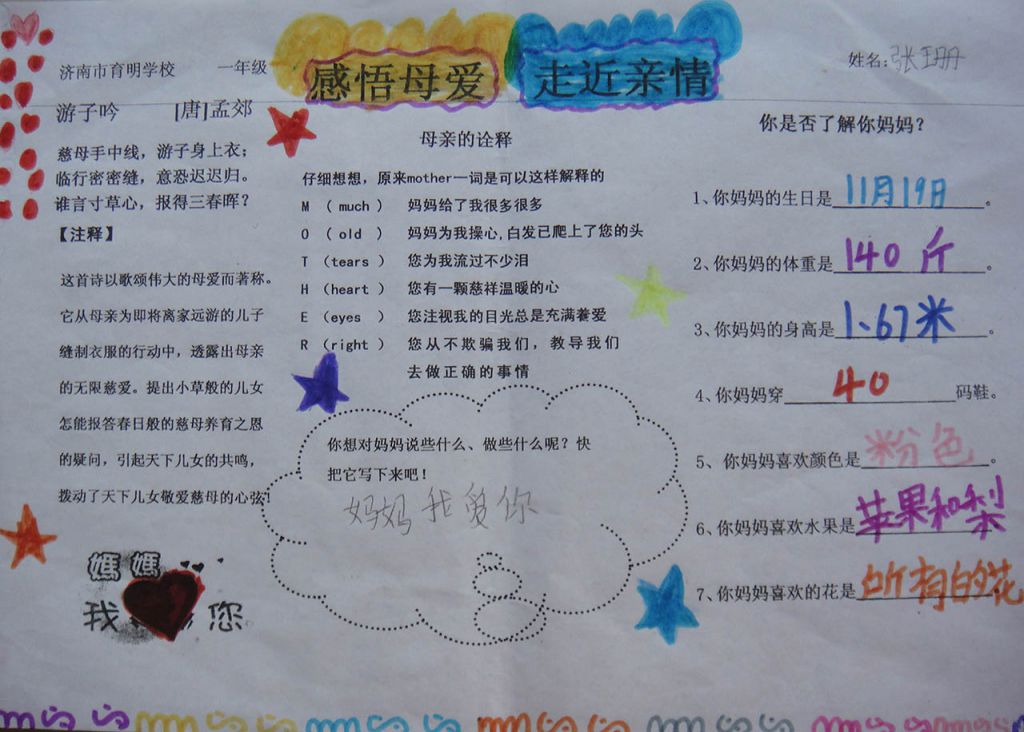 感悟母爱 走近亲情
济南市育明学校 一年级
姓名:张珊
游子吟 [唐]孟郊
慈母手中线，游子身上衣；
临行密密缝，意恐迟迟归。
谁言寸草心，报得三春晖？
【注释】
这首诗以歌颂伟大的母爱而著称。
它从母亲为即将离家远游的儿子
缝制衣服的行动中，透露出母亲
的无限慈爱。提出小草般的儿女
怎能报答春日般的慈母养育之恩
的疑问，引起天下儿女的共鸣，
拨动了天下儿女敬爱慈母的心弦!
媽媽
我 您
母亲的诠释
仔细想想，原来mother一词是可以这样解释的
M （ much ） 妈妈给了我很多很多
O （ old ） 妈妈为我操心,白发已爬上了您的头
T （tears ） 您为我流过不少泪
H （heart ） 您有一颗慈祥温暖的心
E （eyes ） 您注视我的目光总是充满着爱
R （right ） 您从不欺骗我们，教导我们
去做正确的事情
你想对妈妈说些什么、做些什么呢？快
把它写下来吧！
妈妈我爱你
你是否了解你妈妈？
1、你妈妈的生日是11月19日。
2、你妈妈的体重是140斤。
3、你妈妈的身高是1.67米。
4、你妈妈穿40码鞋。
5、你妈妈喜欢颜色是粉色。
6、你妈妈喜欢水果是苹果和梨
7、你妈妈喜欢的花是所有的花